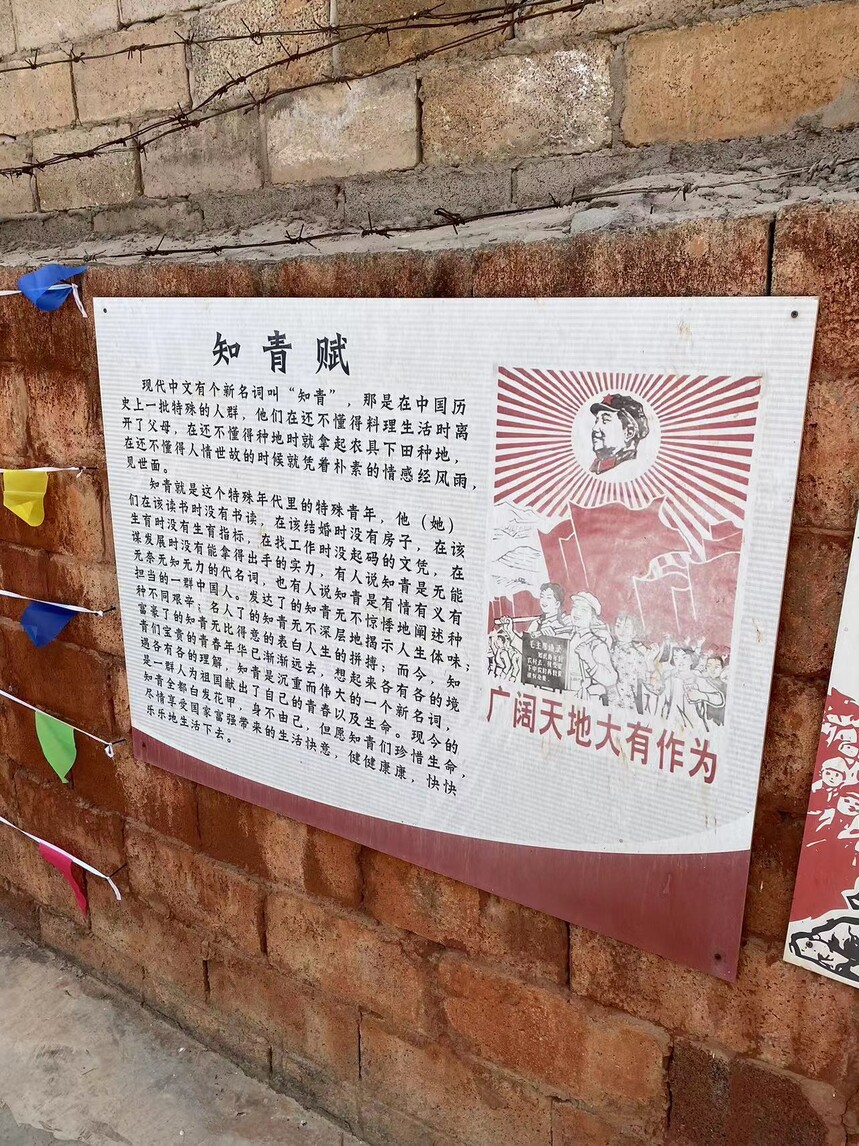 知青赋
现代中文有个新名词叫“知青”，那是在中国历
史上一批特殊的人群，他们在还不懂得料理生活时离
开了父母，在还不懂得种地时就拿起农具下田种地，
在还不懂得人情世故的时候就凭着朴素的情感经风雨，
见世面。
知青就是这个特殊年代里的特殊青年，他（她）
们在该读书时没有书读，在该结婚时没有房子，在该
生育时没有生育指标，在找工作时没起码的文凭，在
谋发展时没有能拿得出手的实力，有人说知青是无能
无奈无知无力的代名词，也有人说知青是有情有义有
担当的一群中国人。发达了的知青无不惊悸地阐述种
种不同艰辛；名人了的知青无不深层地揭示人生体味；
富豪了的知青无比得意的表白人生的拼搏；而今，知
青们宝贵的青春年华已渐渐远去，想起来各有各的境
遇各有各的理解，知青是沉重而伟大的一个新名词，
是一群人为祖国献出了自己的青春以及生命。现今的
知青全都白发花甲，身不由己，但愿知青们珍惜生命，
尽情享受国家富强带来的生活快意，健健康康，快快
乐乐地生活下去。
广阔天地大有作为